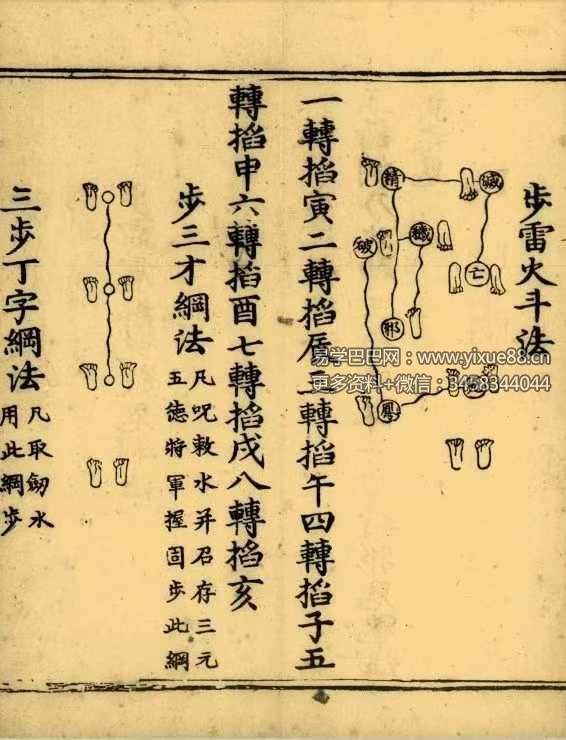 步雷火斗法
滅
精
穢
亡
破
邪
一轉掐寅二轉掐辰三轉掐午四轉掐子五
轉掐申六轉掐酉七轉掐戌八轉掐亥
步三才綱法
凡呪敕水并召存三元
五德將軍握固步此綱
三步丁字綱法
凡取劒水
用此綱步
易学巴巴网：www.yixue88.cn
更多资料+微信：3458344044